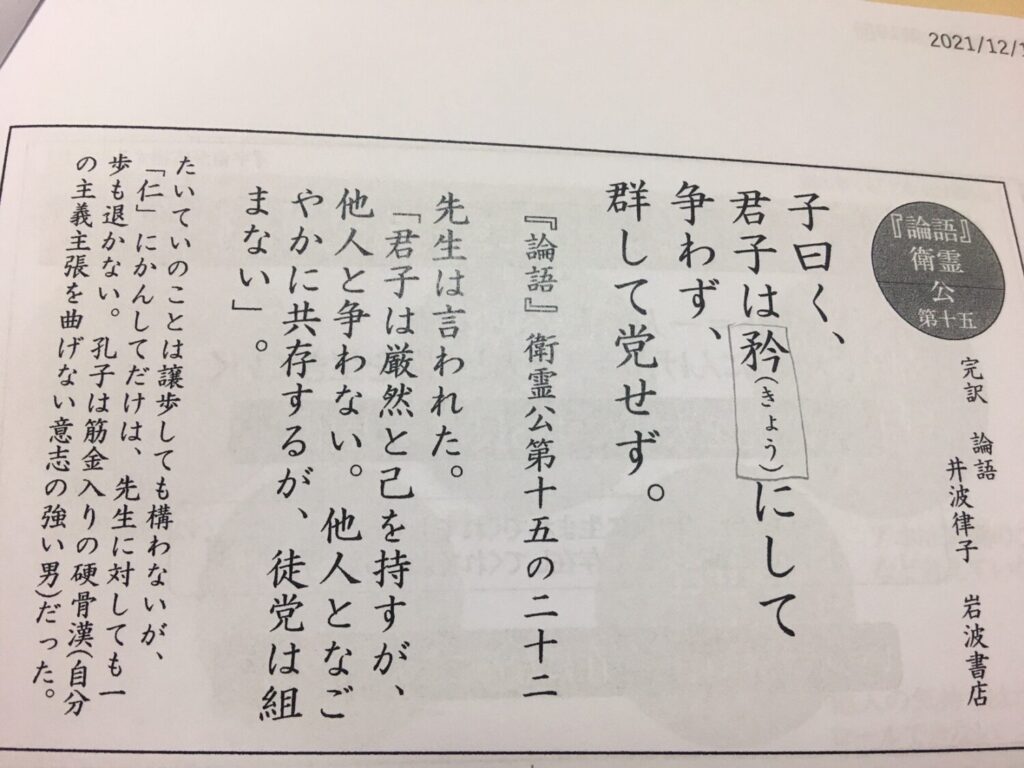 2021/12/1
『論語』
衛霊
公
第十五
完訳 論語
井波律子 岩波書店
子曰く、
君子は矜(きょう)にして
争わず、
群して党せず。
『論語』衛霊公第十五の二十二
先生は言われた。
「君子は厳然と己を持すが、
他人と争わない。他人となご
やかに共存するが、徒党は組
まない」。
たいていのことは譲歩しても構わないが、
「仁」にかんしてだけは、先生に対しても一
歩も退かない。孔子は筋金入りの硬骨漢(自分
の主義主張を曲げない意志の強い男)だった。